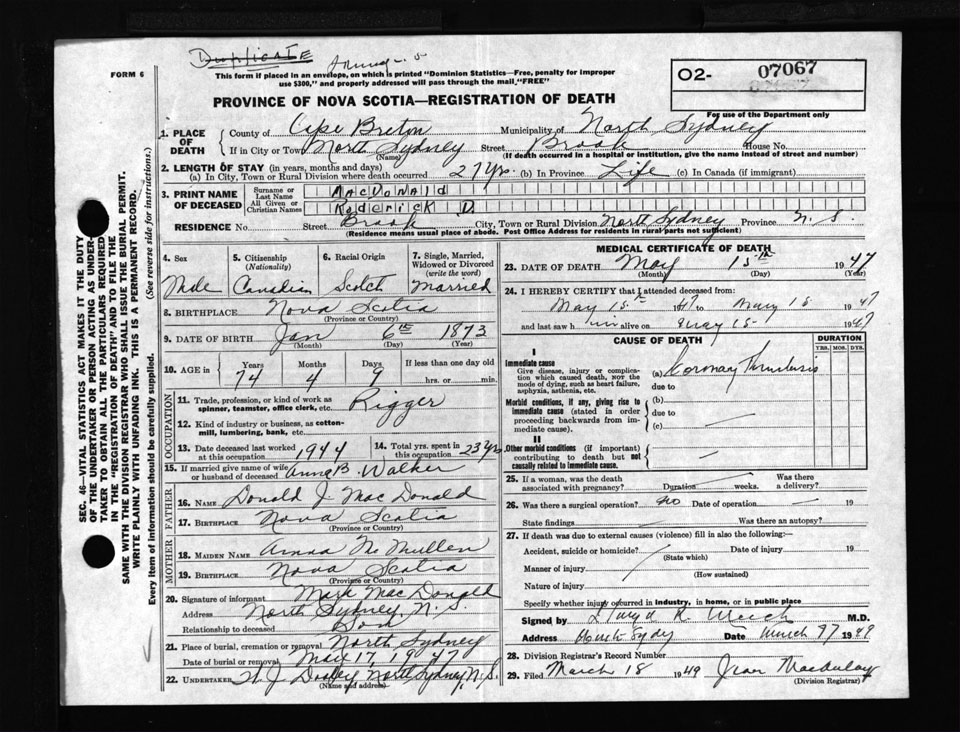 Duplicate
FORM 6
This form if placed in an envelope, on which is printed "Dominion Statistics—Free, penalty for improper
use $300," and properly addressed will pass through the mail "FREE"
O2- 07067
For use of the Department only
PROVINCE OF NOVA SCOTIA—REGISTRATION OF DEATH
1. PLACE OF DEATH
County of Cape Breton Municipality of North Sydney
If in City or Town North Sydney (Name) Street Brook House No.
(If death occurred in a hospital or institution, give the name instead of street and number)
2. LENGTH OF STAY (in years, months and days)
(a) In City, Town or Rural Division where death occurred 27 yrs. (b) In Province Life (c) In Canada (if immigrant)
3. PRINT NAME OF DECEASED
Surname or Last Name MacDonald
All Given or Christian Names Roderick D.
RESIDENCE No. Street Brook City, Town or Rural Division North Sydney Province N. S.
(Residence means usual place of abode. Post Office Address for residents in rural parts not sufficient)
4. Sex
Male
5. Citizenship (Nationality)
Canadian
6. Racial Origin
Scotch
7. Single, Married, Widowed or Divorced (write the word)
Married
8. BIRTHPLACE Nova Scotia
(Province or Country)
9. DATE OF BIRTH Jan 6th 1873
(Month) (Day) (Year)
10. AGE in
Years Months Days If less than one day old
74 4 9 hrs. or min.
OCCUPATION
11. Trade, profession, or kind of work as
spinner, teamster, office clerk, etc. Rigger
12. Kind of industry or business, as cotton-
mill, lumbering, bank, etc.
13. Date deceased last worked
at this occupation 1944
14. Total yrs. spent in
this occupation 23 yrs
15. If married give name of wife
or husband of deceased Anna B. Walker
FATHER
16. Name Donald J. MacDonald
17. Birthplace Nova Scotia
(Province or Country)
MOTHER
18. Maiden Name Anna McMullen
19. Birthplace Nova Scotia
(Province or Country)
20. Signature of informant Mark MacDonald
Address North Sydney N. S.
Relationship to deceased Son
21. Place of burial, cremation or removal North Sydney
Date of burial or removal May 17, 1947
22. Undertaker W. J. Dooley North Sydney, N. S.
(Name and address)
MEDICAL CERTIFICATE OF DEATH
23. DATE OF DEATH May 15th 1947
(Month) (Day) (Year)
24. I HEREBY CERTIFY that I attended deceased from:
May 15th 47 to May 15 1947
and last saw him alive on May 15 1947
CAUSE OF DEATH
DURATION
YRS. MOS. DYS.
I
Immediate cause
Give disease, injury or complica-
tion which caused death, NOT the
mode of dying, such as heart failure,
asphyxia, asthenia, etc.
(a) Coronary Thrombosis
due to
Morbid conditions, if any, giving rise to
immediate cause (stated in order
proceeding backwards from im-
mediate cause).
(b)
due to
(c)
II
Other morbid conditions (if important)
contributing to death but not
causally related to immediate cause.
25. If a woman, was the death
associated with pregnancy? Duration weeks. Was there
a delivery?
26. Was there a surgical operation? No Date of operation 19
State findings Was there an autopsy?
27. If death was due to external causes (violence) fill in also the following:—
Accident, suicide or homicide? (State which) Date of injury 19
Manner of injury
(How sustained)
Nature of injury
Specify whether injury occurred in industry, in home, or in public place
Signed by M.D.
Address Date March 1949
28. Division Registrar's Record Number
29. Filed March 18 1949 Jean Macaulay
(Division Registrar)
SEC. 46—VITAL STATISTICS ACT MAKES IT THE DUTY
OF THE UNDERTAKER OR PERSON ACTING AS UNDER-
TAKER TO OBTAIN ALL THE PARTICULARS REQUIRED
IN THE "REGISTRATION OF DEATH" AND TO FILE THE
SAME WITH THE DIVISION REGISTRAR WHO SHALL ISSUE THE BURIAL PERMIT.
WRITE PLAINLY WITH UNFADING INK. THIS IS A PERMANENT RECORD.
Every item of information should be carefully supplied. (See reverse side for instructions.)